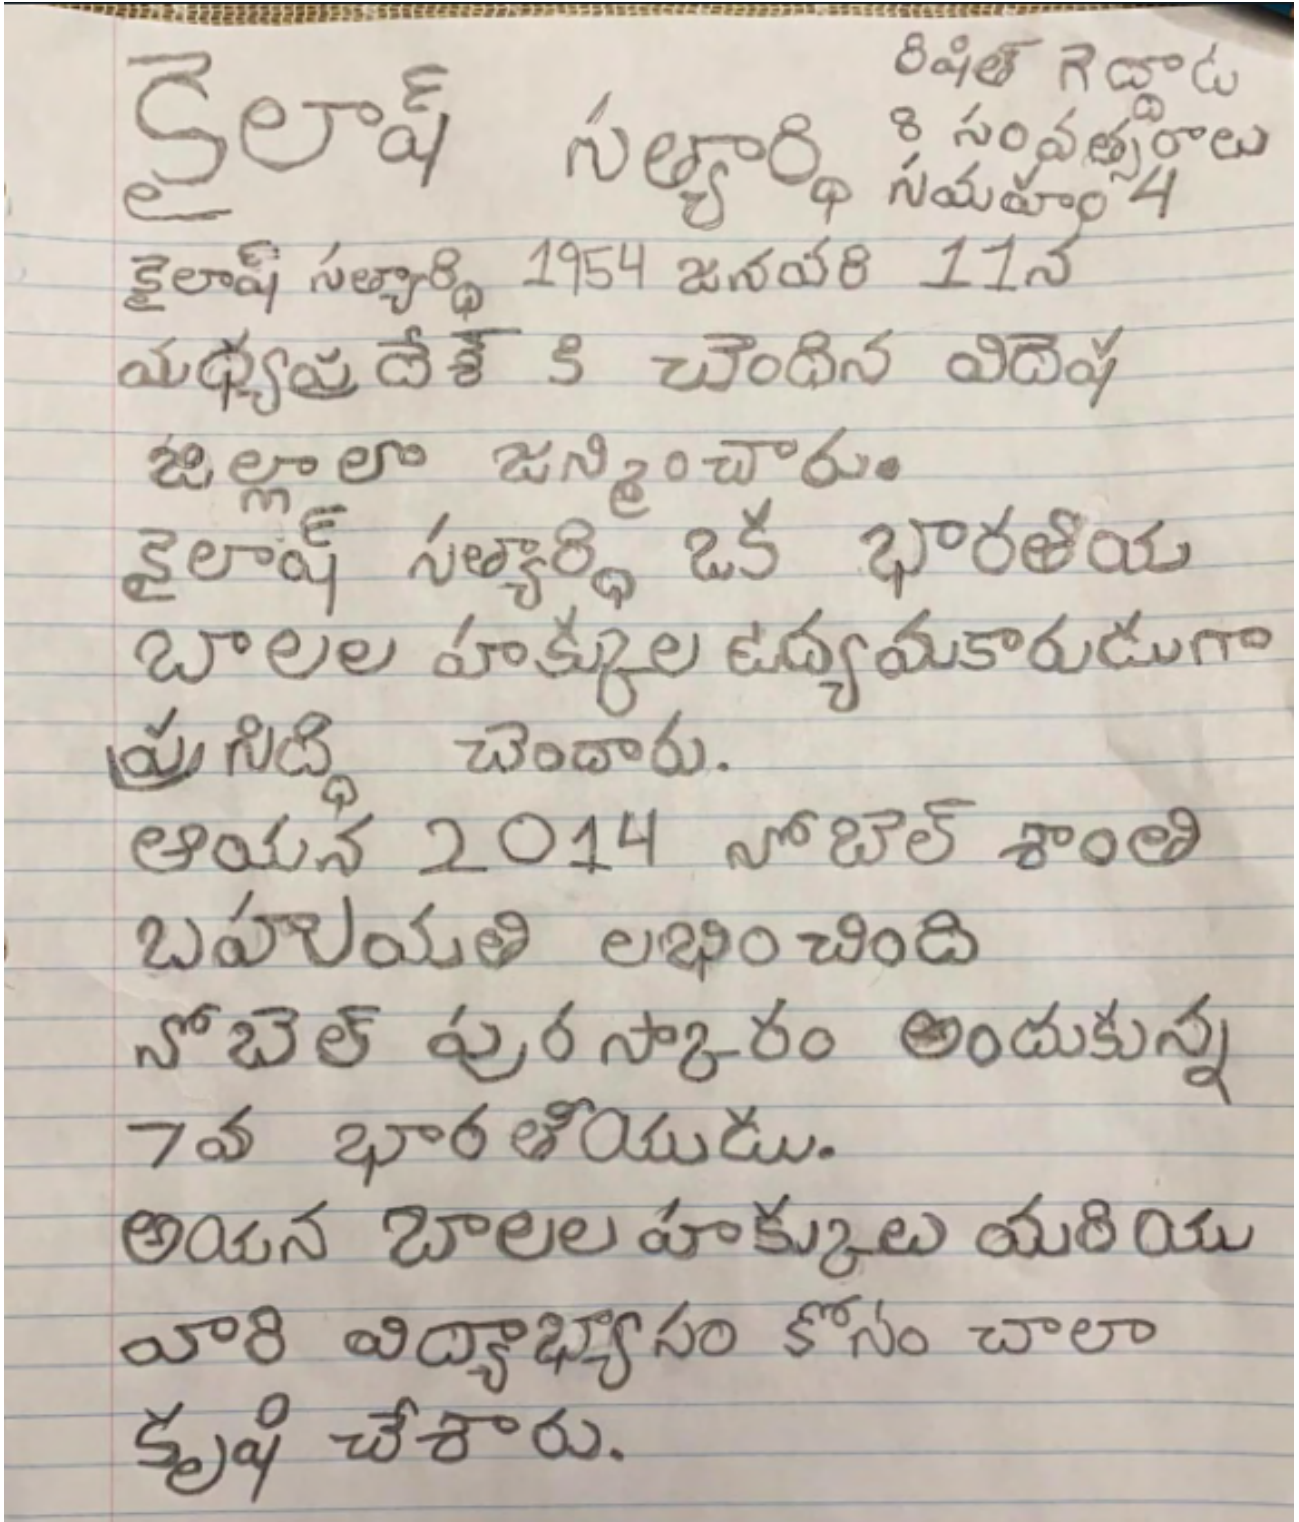 రిషిత్ గెద్దాడ
కైలాష్ సత్యార్థి
8 సంవత్సరాలు
సమూహం 4
కైలాష్ సత్యార్థి 1954 జనవరి 11న
మధ్యప్రదేశ్ కి చెందిన విదిష
జిల్లాలో జన్మించారు.
కైలాష్ సత్యార్థి ఒక భారతీయ
బాలల హక్కుల ఉద్యమకారుడుగా
ప్రసిద్ధి చెందారు.
ఆయన 2014 నోబెల్ శాంతి
బహుమతి లభించింది
నోబెల్ పురస్కారం అందుకున్న
7వ భారతీయుడు.
అయన బాలల హక్కులు మరియు
వారి విద్యాభ్యాసం కోసం చాలా
కృషి చేశారు.